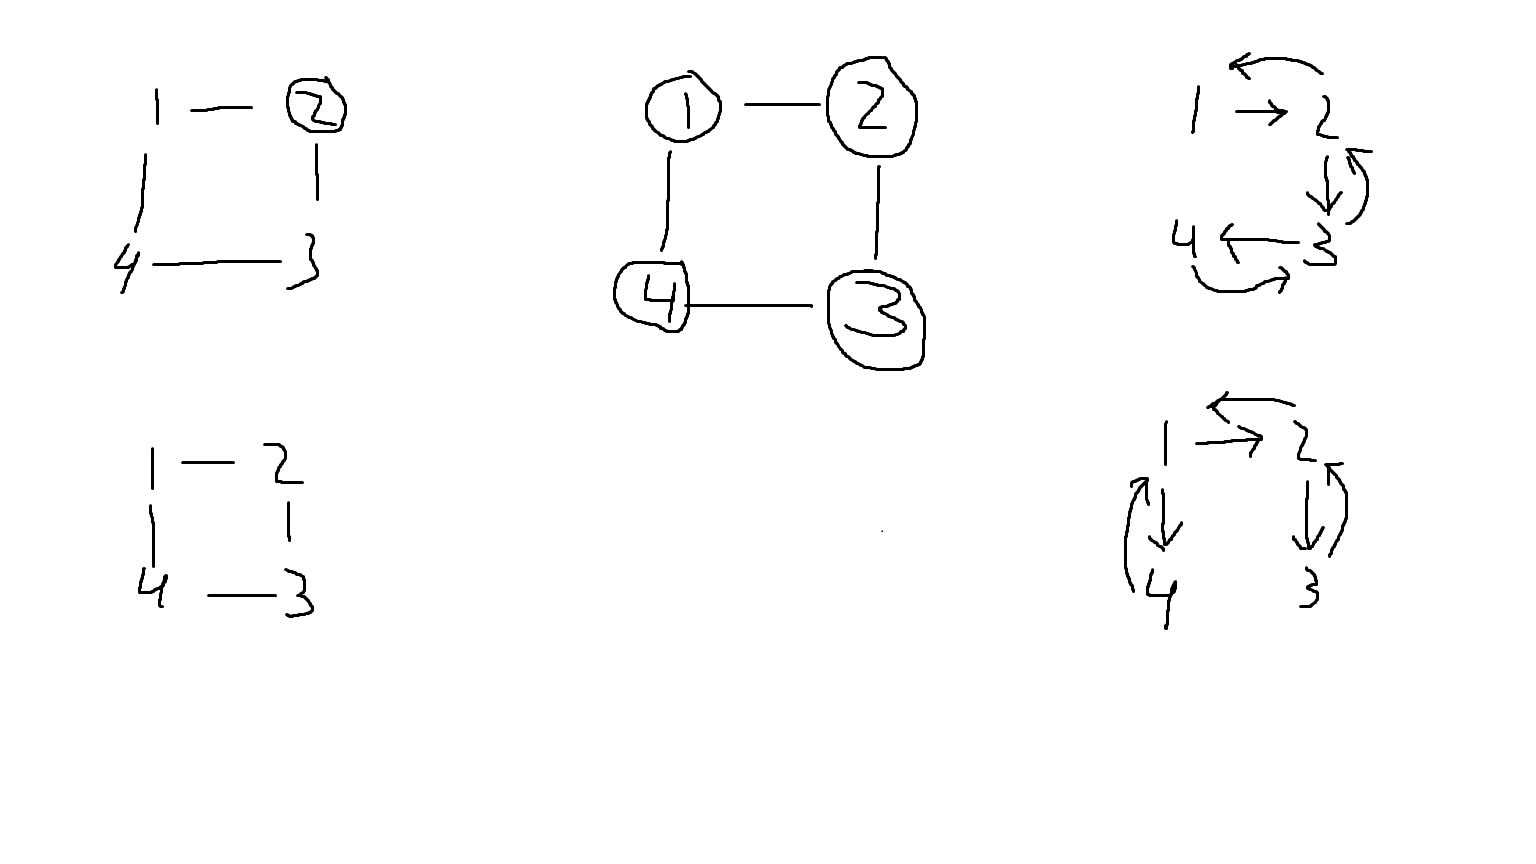 1 2
4 3
1 2
4 3
1 2
4 3
1 2
4 3
1 2
4 3